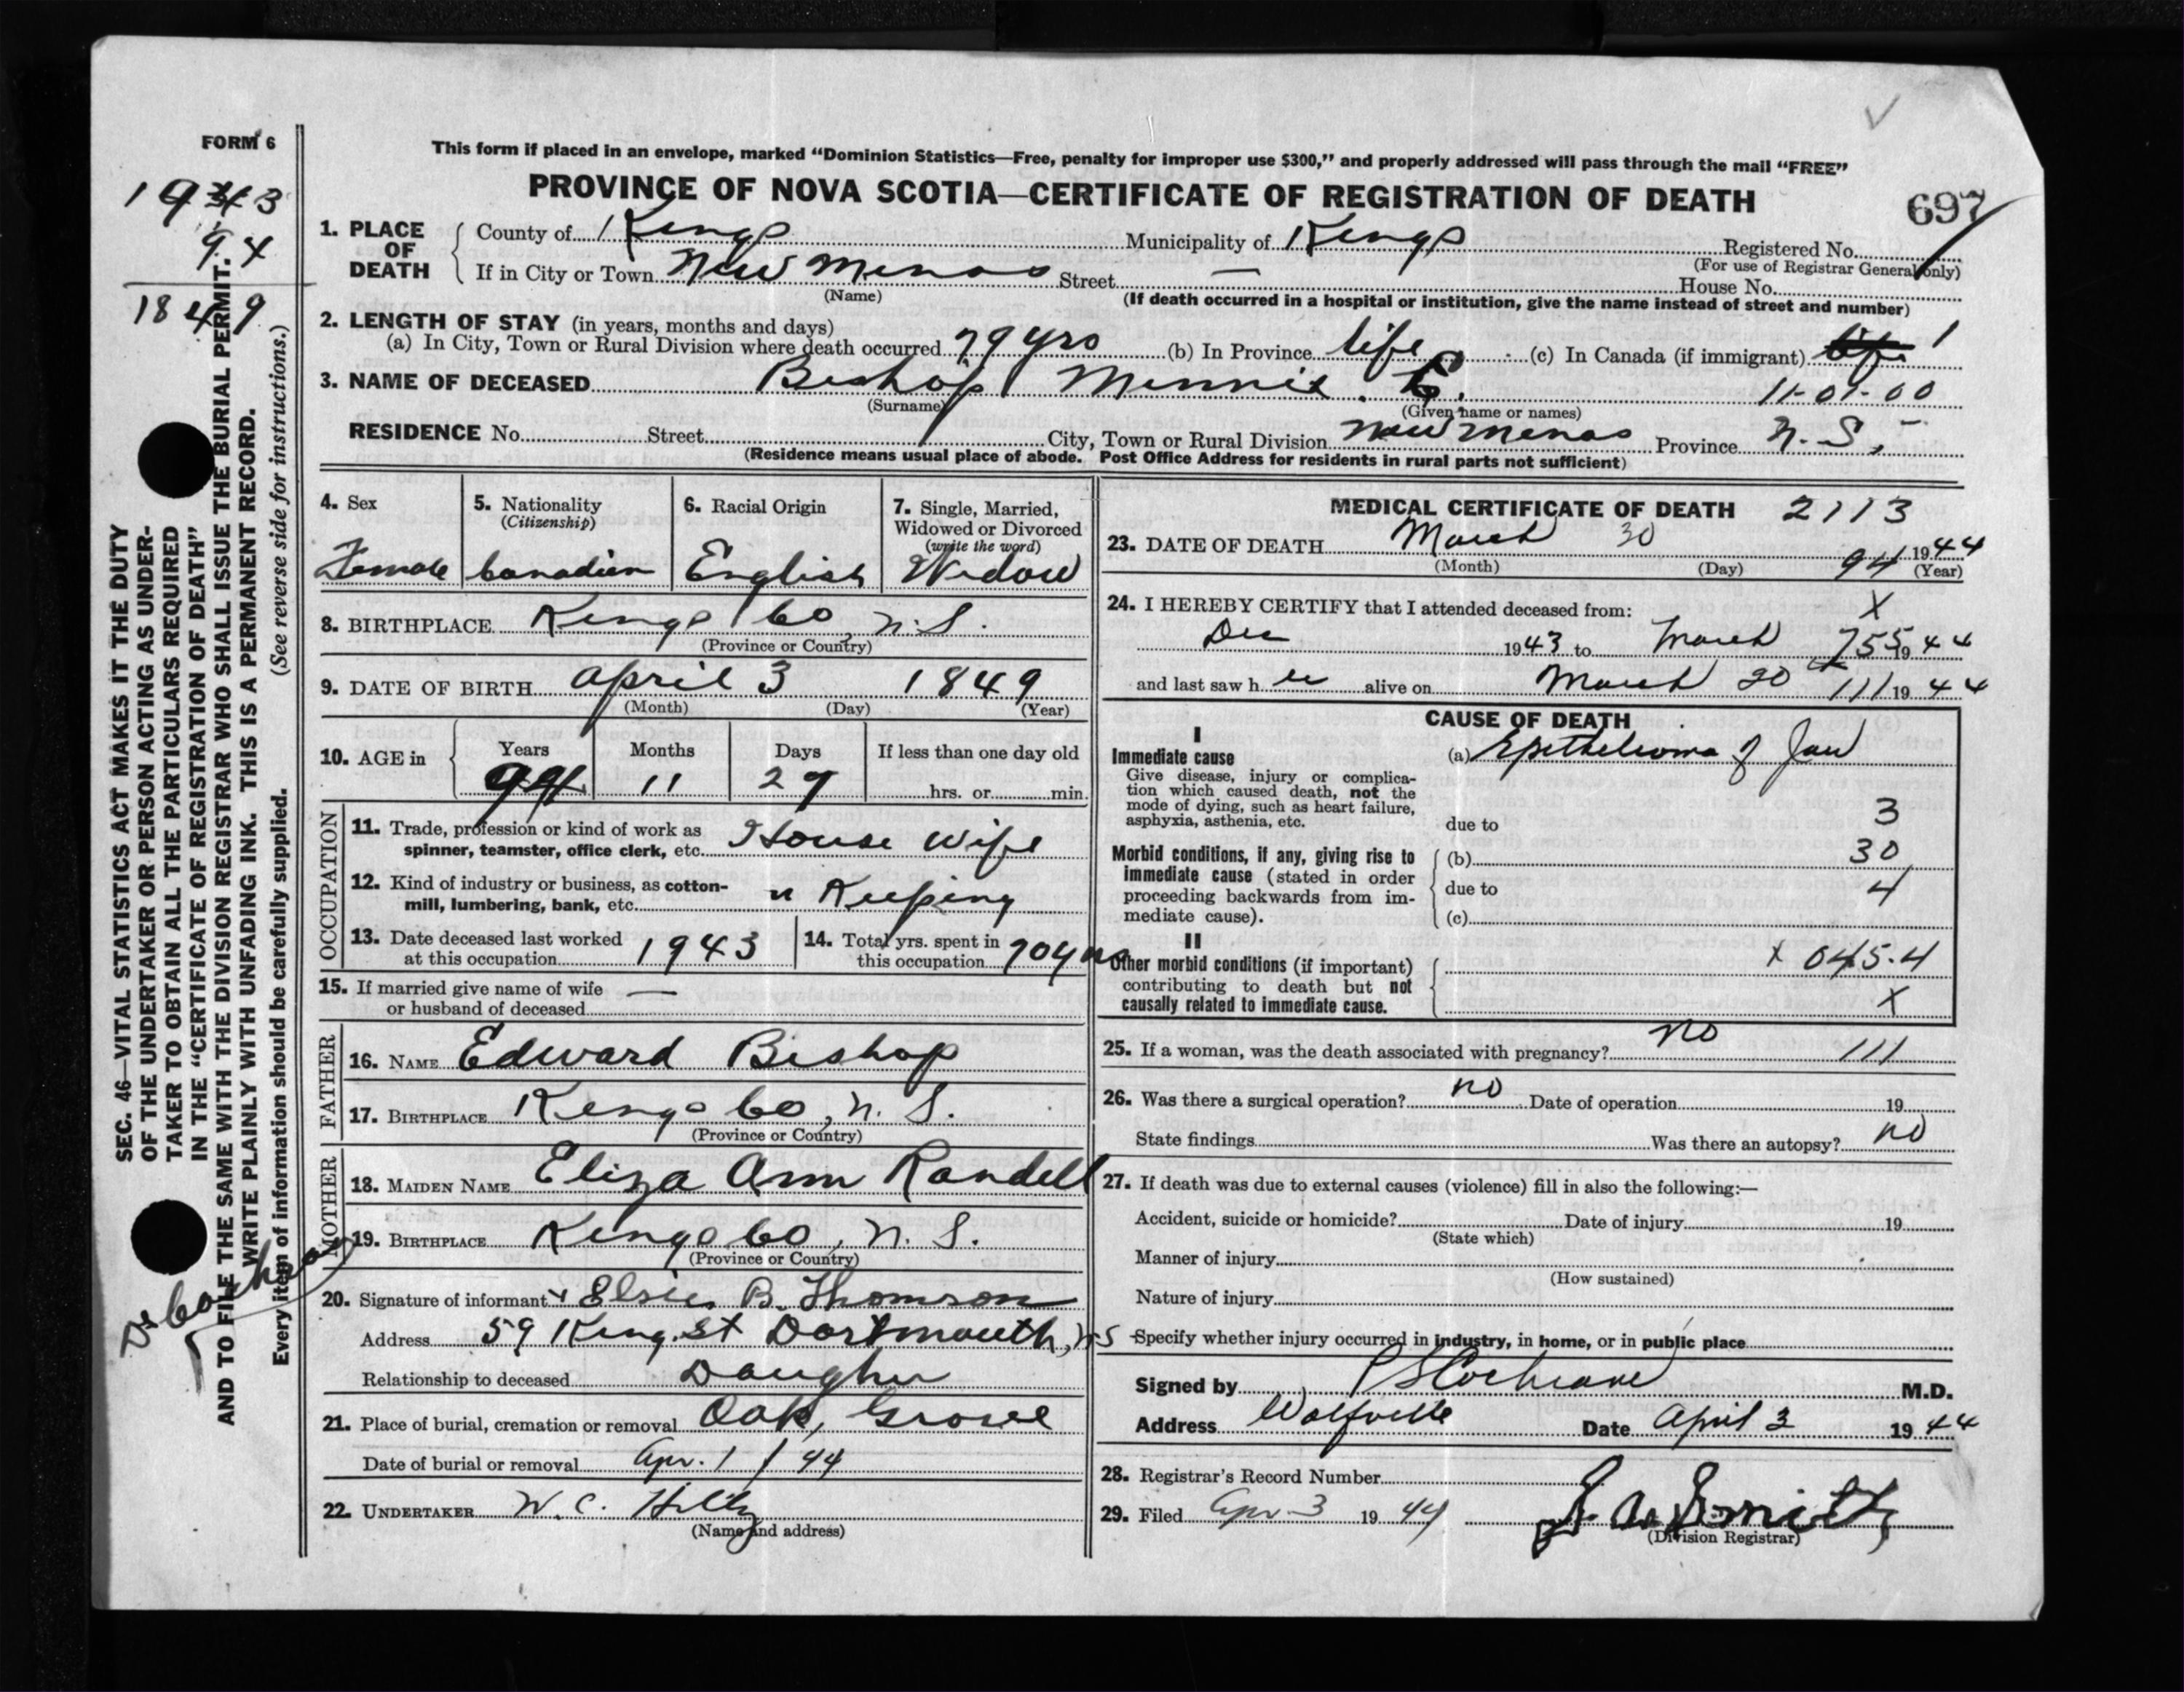 FORM 6
1943
94
1849
SEC. 46—VITAL STATISTICS ACT MAKES IT THE DUTY
OF THE UNDERTAKER OR PERSON ACTING AS UNDER-
TAKER TO OBTAIN ALL THE PARTICULARS REQUIRED
IN THE "CERTIFICATE OF REGISTRATION OF DEATH"
AND TO FILE THE SAME WITH THE DIVISION REGISTRAR WHO SHALL ISSUE THE BURIAL PERMIT.
WRITE PLAINLY WITH UNFADING INK. THIS IS A PERMANENT RECORD.
Every item of information should be carefully supplied. (See reverse side for instructions.)
This form if placed in an envelope, marked "Dominion Statistics—Free, penalty for improper use $300," and properly addressed will pass through the mail "FREE"
PROVINCE OF NOVA SCOTIA—CERTIFICATE OF REGISTRATION OF DEATH
697
1. PLACE OF DEATH County of Kings Municipality of Kings Registered No.
(For use of Registrar General only)
If in City or Town New Minas Street — House No.
(Name) (If death occurred in a hospital or institution, give the name instead of street and number)
2. LENGTH OF STAY (in years, months and days)
(a) In City, Town or Rural Division where death occurred 79 yrs (b) In Province life (c) In Canada (if immigrant) life 1
3. NAME OF DECEASED Bishop Minnie E. 11-01-00
(Surname) (Given name or names)
RESIDENCE No. Street City, Town or Rural Division New Minas Province N.S.
(Residence means usual place of abode. Post Office Address for residents in rural parts not sufficient)
4. Sex Female
5. Nationality (Citizenship) Canadian
6. Racial Origin English
7. Single, Married, Widowed or Divorced (write the word) Widow
8. BIRTHPLACE Kings Co N.S.
(Province or Country)
9. DATE OF BIRTH April 3 1849
(Month) (Day) (Year)
10. AGE in Years Months Days If less than one day old
94 11 27 hrs. or min.
OCCUPATION
11. Trade, profession or kind of work as spinner, teamster, office clerk, etc. House Wife
12. Kind of industry or business, as cotton-mill, lumbering, bank, etc. " Keeping
13. Date deceased last worked at this occupation 1943
14. Total yrs. spent in this occupation 70 yrs
15. If married give name of wife or husband of deceased —
FATHER
16. NAME Edward Bishop
17. BIRTHPLACE Kings Co, N.S.
(Province or Country)
MOTHER
18. MAIDEN NAME Eliza Ann Randell
19. BIRTHPLACE Kings Co, N.S.
(Province or Country)
20. Signature of informant Elsie B. Thomson
Address 59 King St Dartmouth, NS
Relationship to deceased Daughter
21. Place of burial, cremation or removal Oak Grove
Date of burial or removal Apr. 1 / 44
22. UNDERTAKER W. C.
(Name and address)
MEDICAL CERTIFICATE OF DEATH 2113
23. DATE OF DEATH March 30 1944
(Month) (Day) 94 (Year)
24. I HEREBY CERTIFY that I attended deceased from: X
Dec 1943 to March 1944
and last saw her alive on March 20 1944
CAUSE OF DEATH
I
Immediate cause (a) Epithelioma of Jaw
Give disease, injury or complica-
tion which caused death, not the
mode of dying, such as heart failure,
asphyxia, asthenia, etc.
due to 3
Morbid conditions, if any, giving rise to (b) 30
immediate cause (stated in order
proceeding backwards from im- due to 4
mediate cause). (c)
II
Other morbid conditions (if important) X 045.4
contributing to death but not
causally related to immediate cause. X
25. If a woman, was the death associated with pregnancy? no 111
26. Was there a surgical operation? no Date of operation 19
State findings Was there an autopsy? no
27. If death was due to external causes (violence) fill in also the following:—
Accident, suicide or homicide? Date of injury 19
(State which)
Manner of injury
(How sustained)
Nature of injury
Specify whether injury occurred in industry, in home, or in public place
Signed by P S Cochrane M.D.
Address Wolfville Date April 3 1944
28. Registrar's Record Number
29. Filed Apr 3 1944
(Division Registrar)
Dr Cochran